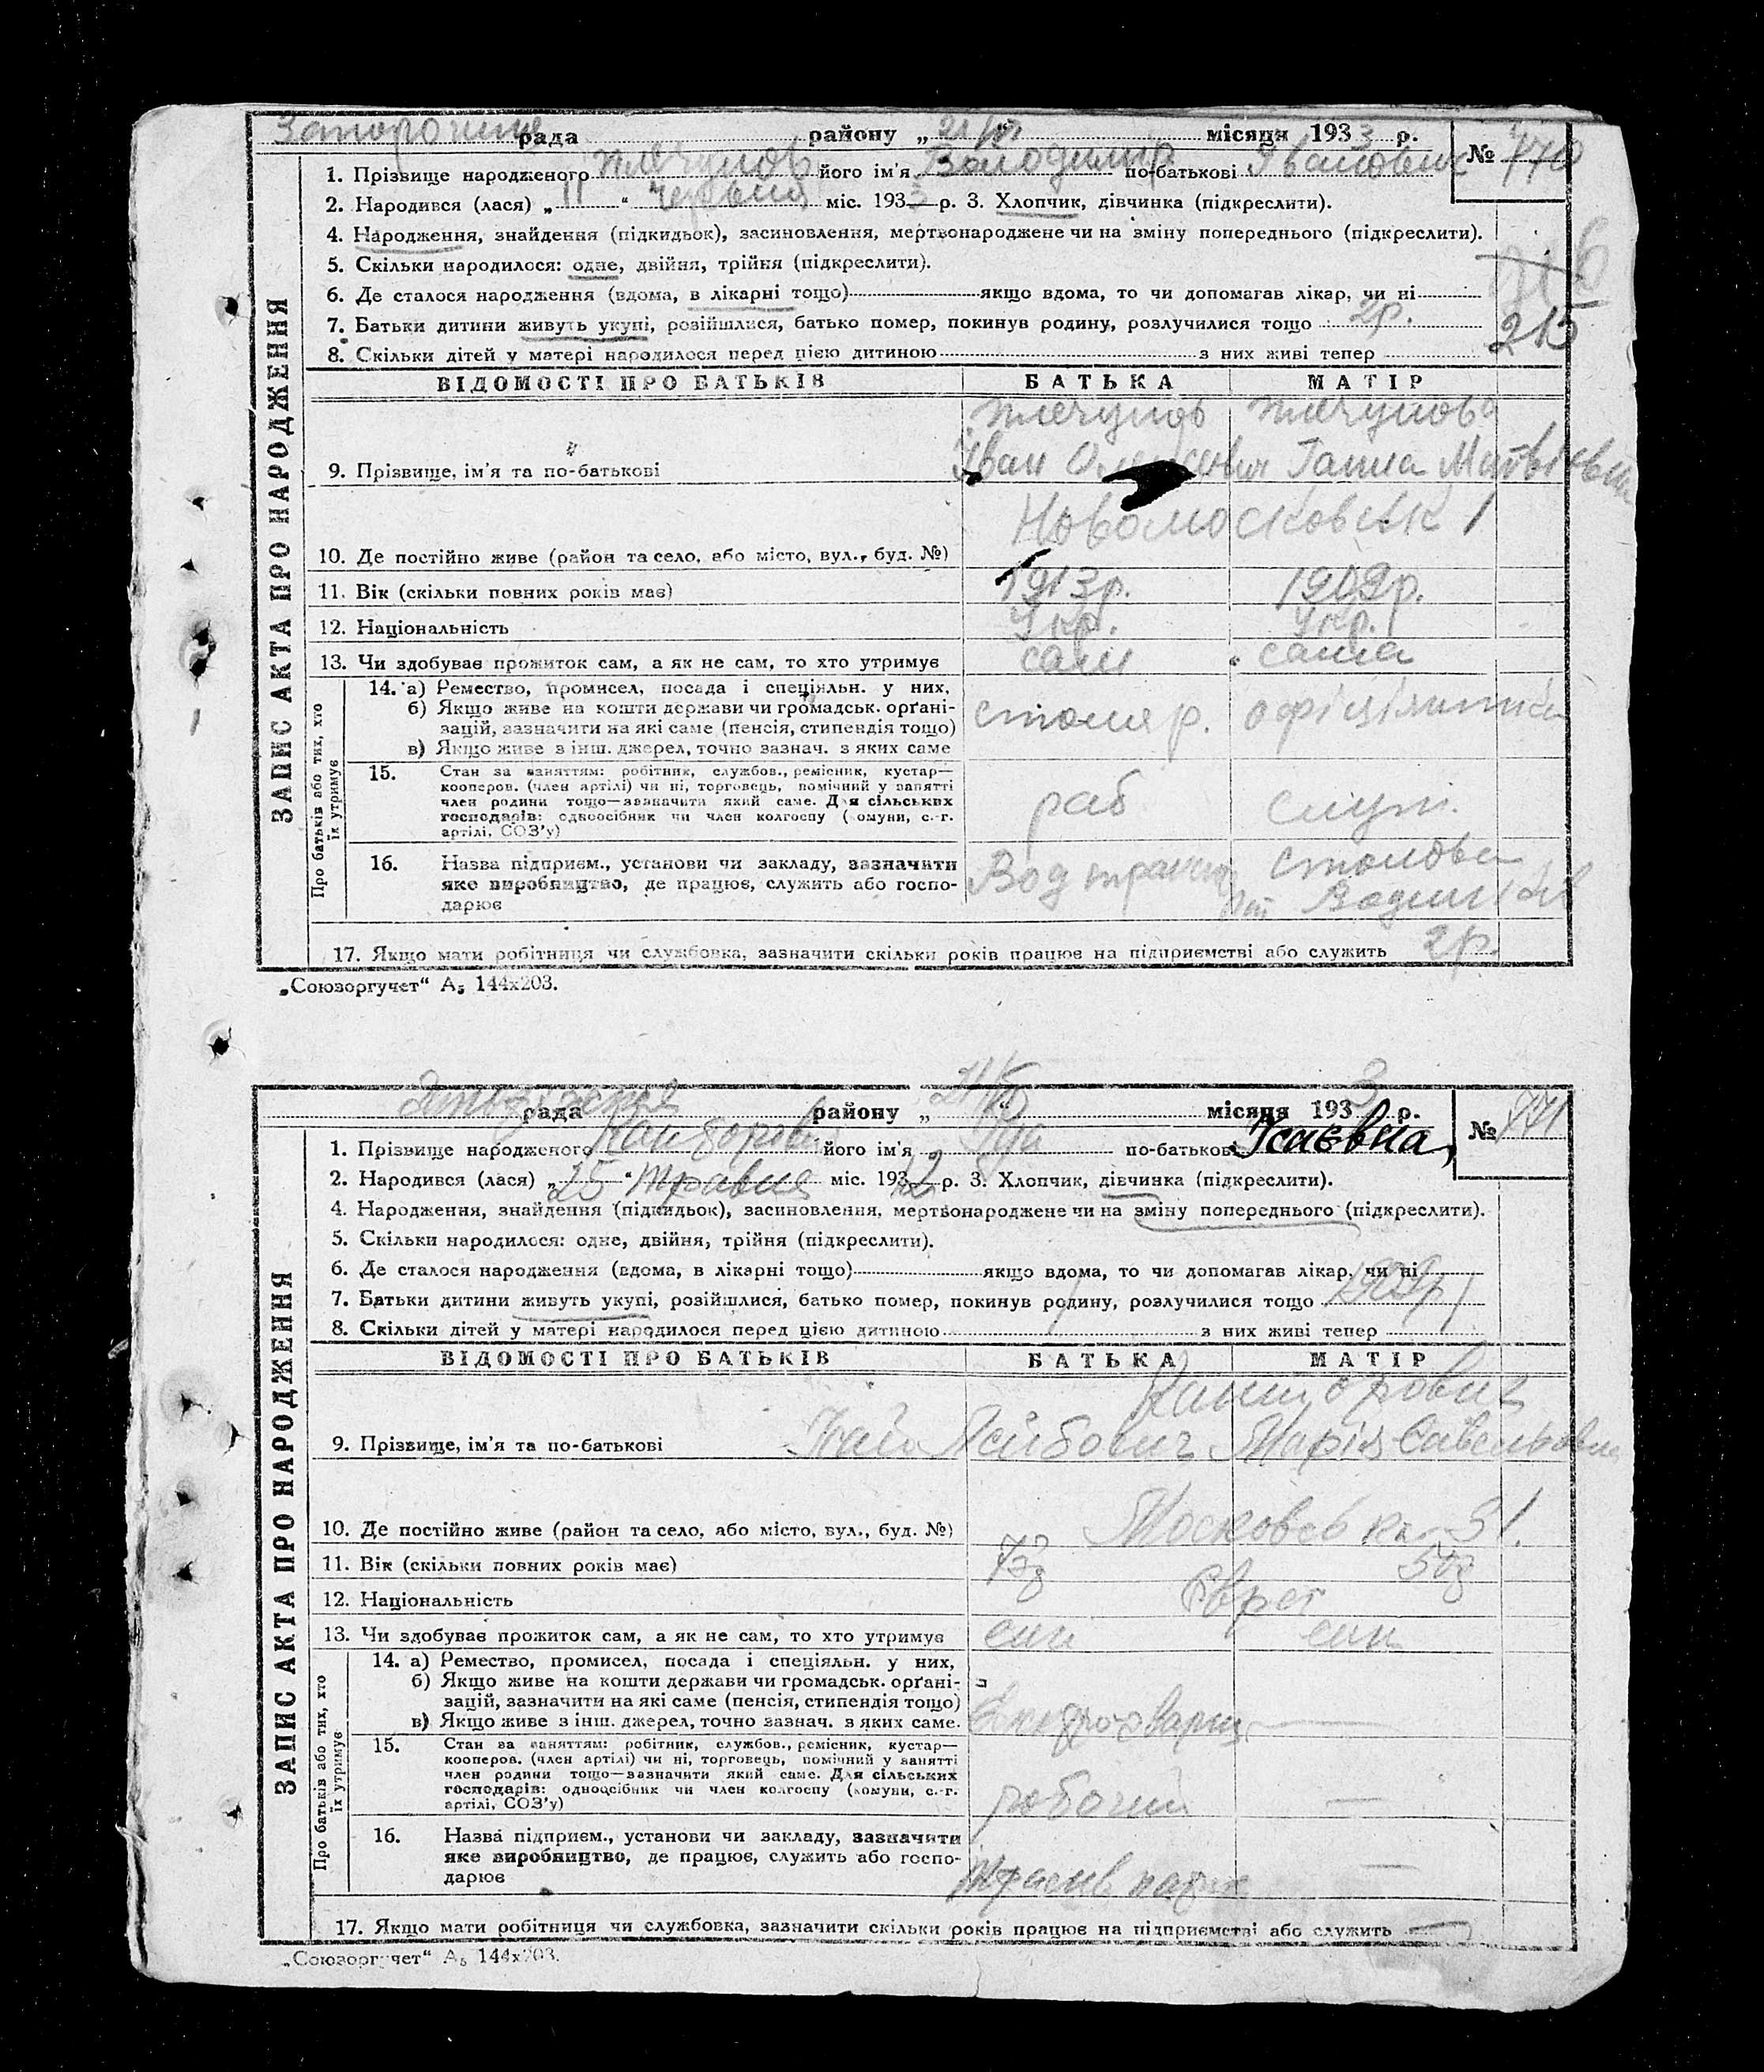 рада району „21/VI“ місяця 1933 р.
№ 770
1. Прізвище народженого його ім'я Володимір по-батькові Іванович
2. Народився (лася) „11“ червня міс. 1933 р. 3. Хлопчик, дівчинка (підкреслити).
4. Народження, знайдення (підкидьок), засиновлення, мертвонароджене чи на зміну попереднього (підкреслити).
5. Скільки народилося: одне, двійня, трійня (підкреслити).
6. Де сталося народження (вдома, в лікарні тощо) якщо вдома, то чи допомагав лікар, чи ні
7. Батьки дитини живуть укупі, розійшлися, батько помер, покинув родину, розлучилися тощо 2р.
215
8. Скільки дітей у матері народилося перед цією дитиною з них живі тепер
ЗАПИС АКТА ПРО НАРОДЖЕННЯ
ВІДОМОСТІ ПРО БАТЬКІВ БАТЬКА МАТІР
9. Прізвище, ім'я та по-батькові Іван Ганна Матвієвна
Новомосковськ 1
10. Де постійно живе (район та село, або місто, вул., буд. №)
11. Вік (скільки повних років має) 1913р. 1909р.
12. Національність Укр. Укр.
13. Чи здобуває прожиток сам, а як не сам, то хто утримує сам сама
Про батьків або тих, хто їх утримує
14. а) Ремество, промисел, посада і спеціяльн. у них,
б) Якщо живе на кошти держави чи громадськ. орґані-
зацій, зазначити на які саме (пенсія, стипендія тощо) столяр. офіціянтка
в) Якщо живе з інш. джерел, точно зазнач. з яких саме
15. Стан за заняттям: робітник, службов., ремісник, кустар—
кооперов. (член артілі) чи ні, торговець, помічний у занятті
член родини тощо—зазначити який саме. Для сільських раб служ.
господарів: одноосібник чи член колгоспу (комуни, с.-г.
артілі, СОЗ'у)
16. Назва підприєм., установи чи закладу, зазначити столова
яке виробництво, де працює, служить або госпо- Вод
дарює
17. Якщо мати робітниця чи службовка, зазначити скільки років працює на підприємстві або служить 2р.
„Союзоргучет“ А₅ 144х203.
рада району „21/VI“ місяця 1933 р.
№ 771
1. Прізвище народженого його ім'я по-батькові Ісаєвна,
2. Народився (лася) „25“ травня міс. 1912 р. 3. Хлопчик, дівчинка (підкреслити).
4. Народження, знайдення (підкидьок), засиновлення, мертвонароджене чи на зміну попереднього (підкреслити).
5. Скільки народилося: одне, двійня, трійня (підкреслити).
6. Де сталося народження (вдома, в лікарні тощо) якщо вдома, то чи допомагав лікар, чи ні
7. Батьки дитини живуть укупі, розійшлися, батько помер, покинув родину, розлучилися тощо
8. Скільки дітей у матері народилося перед цією дитиною з них живі тепер
ЗАПИС АКТА ПРО НАРОДЖЕННЯ
ВІДОМОСТІ ПРО БАТЬКІВ БАТЬКА МАТІР
9. Прізвище, ім'я та по-батькові Марія
10. Де постійно живе (район та село, або місто, вул., буд. №)
11. Вік (скільки повних років має)
12. Національність Євреї
13. Чи здобуває прожиток сам, а як не сам, то хто утримує
Про батьків або тих, хто їх утримує
14. а) Ремество, промисел, посада і спеціяльн. у них,
б) Якщо живе на кошти держави чи громадськ. орґані-
зацій, зазначити на які саме (пенсія, стипендія тощо)
в) Якщо живе з інш. джерел, точно зазнач. з яких саме.
15. Стан за заняттям: робітник, службов., ремісник, кустар—
кооперов. (член артілі) чи ні, торговець, помічний у занятті
член родини тощо—зазначити який саме. Для сільських
господарів: одноосібник чи член колгоспу (комуни, с.-г. робочий —
артілі, СОЗ'у)
16. Назва підприєм., установи чи закладу, зазначити
яке виробництво, де працює, служить або госпо- —
дарює
17. Якщо мати робітниця чи службовка, зазначити скільки років працює на підприємстві або служить —
„Союзоргучет“ А₅ 144х203.